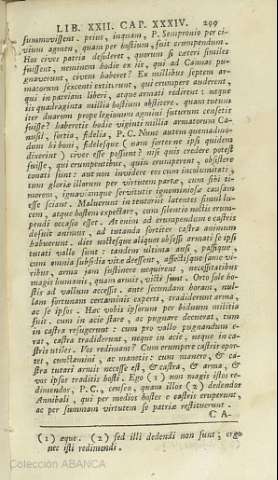 LIB. XXII. CAP. XXXIV. 299
summovissent. prius, inquam, P. Sempronio per ci-
vium agmen, quam per hostium, fuit erumpendum.
Hos cives patria desideret, quorum si ceteri similes
fuissent, neminem hodie ex iis, qui ad Cannas pu-
gnaverunt, civem haberet? Ex millibus septem ar-
matorum sexcenti extiterunt, qui erumpere auderent,
qui in patriam liberi, atque armati redirent: neque
iis quadraginta millia hostium obstitere. quam tutum
iter duarum prope legionum agmini futurum censetis
fuisse? haberetis hodie viginti millia armatorum Ca-
nusii, fortia, fidelia, P. C. Nunc autem quemadmo-
dum hi boni, fidelesque (nam fortes ne ipsi quidem
dixerint) cives esse possunt? nisi quis credere potest
fuisse, qui erumpentibus, quin erumperent, obsistere
conati sunt: aut non invidere eos cum incolumitati,
tum gloriæ illorum per virtutem partæ, cum sibi ti-
morem, ignaviamque servitutis ignominiosæ caussam
esse sciant. Maluerunt in tentoriis latentes simul lu-
cem, atque hostem expectare, cum silentio noctis erum-
pendi occasio esset. At enim ad erumpendum e castris
defuit animus, ad tutanda fortiter castra animum
habuerunt. dies noctesque aliquot obsessi armati se ipsi
tutati vallo sunt: tandem ultima ausi, passique,
cum omnia subsidia vitæ deessent, affectisque fame vi-
ribus, arma jam sustinere nequirent, necessitatibus
magis humanis, quam armis, victi sunt. Orto sole ho-
stis ad vallum accessit. ante secundam horam, nul-
lam fortunam certaminis experti, tradiderunt arma,
ac se ipsos. Hæc vobis ipsorum per biduum militia
fuit. cum in acie stare, ac pugnare decuerat, tum
in castra refugerunt: cum pro vallo pugnandum e-
rat, castra tradiderunt, neque in acie, neque in ca-
stris utiles. Vos redimam? Cum erumpere castris opor-
tet, cunctamini, ac manetis: cum manere, & ca-
stra tutari armis necesse est, & castra, & arma, &
vos ipsos traditis hosti. Ego (1) non magis istos re-
dimendos, P. C., censeo, quam illos (2) dedendos
Annibali, qui per medios hostes e castris eruperunt,
ac per summam virtutem se patriæ restituerunt.
C A-
(1) æque. (2) sed illi dedendi non sunt; ergo
nec isti redimendi.
Colección ABANCA